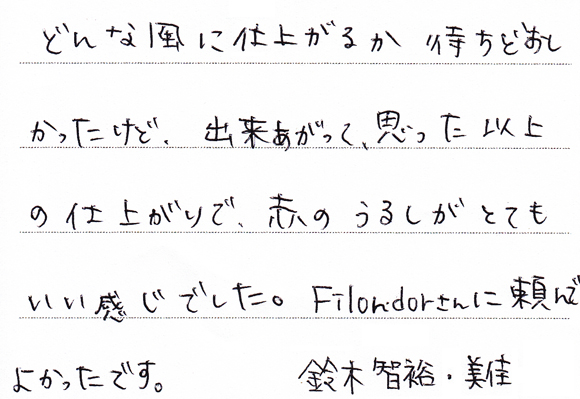 どんな風に仕上がるか 待ちどおし
かったけど、出来あがって、思った以上
の仕上がりで、赤のうるしがとても
いい感じでした。Filondorさんに頼んで
よかったです。 鈴木智裕・美佳